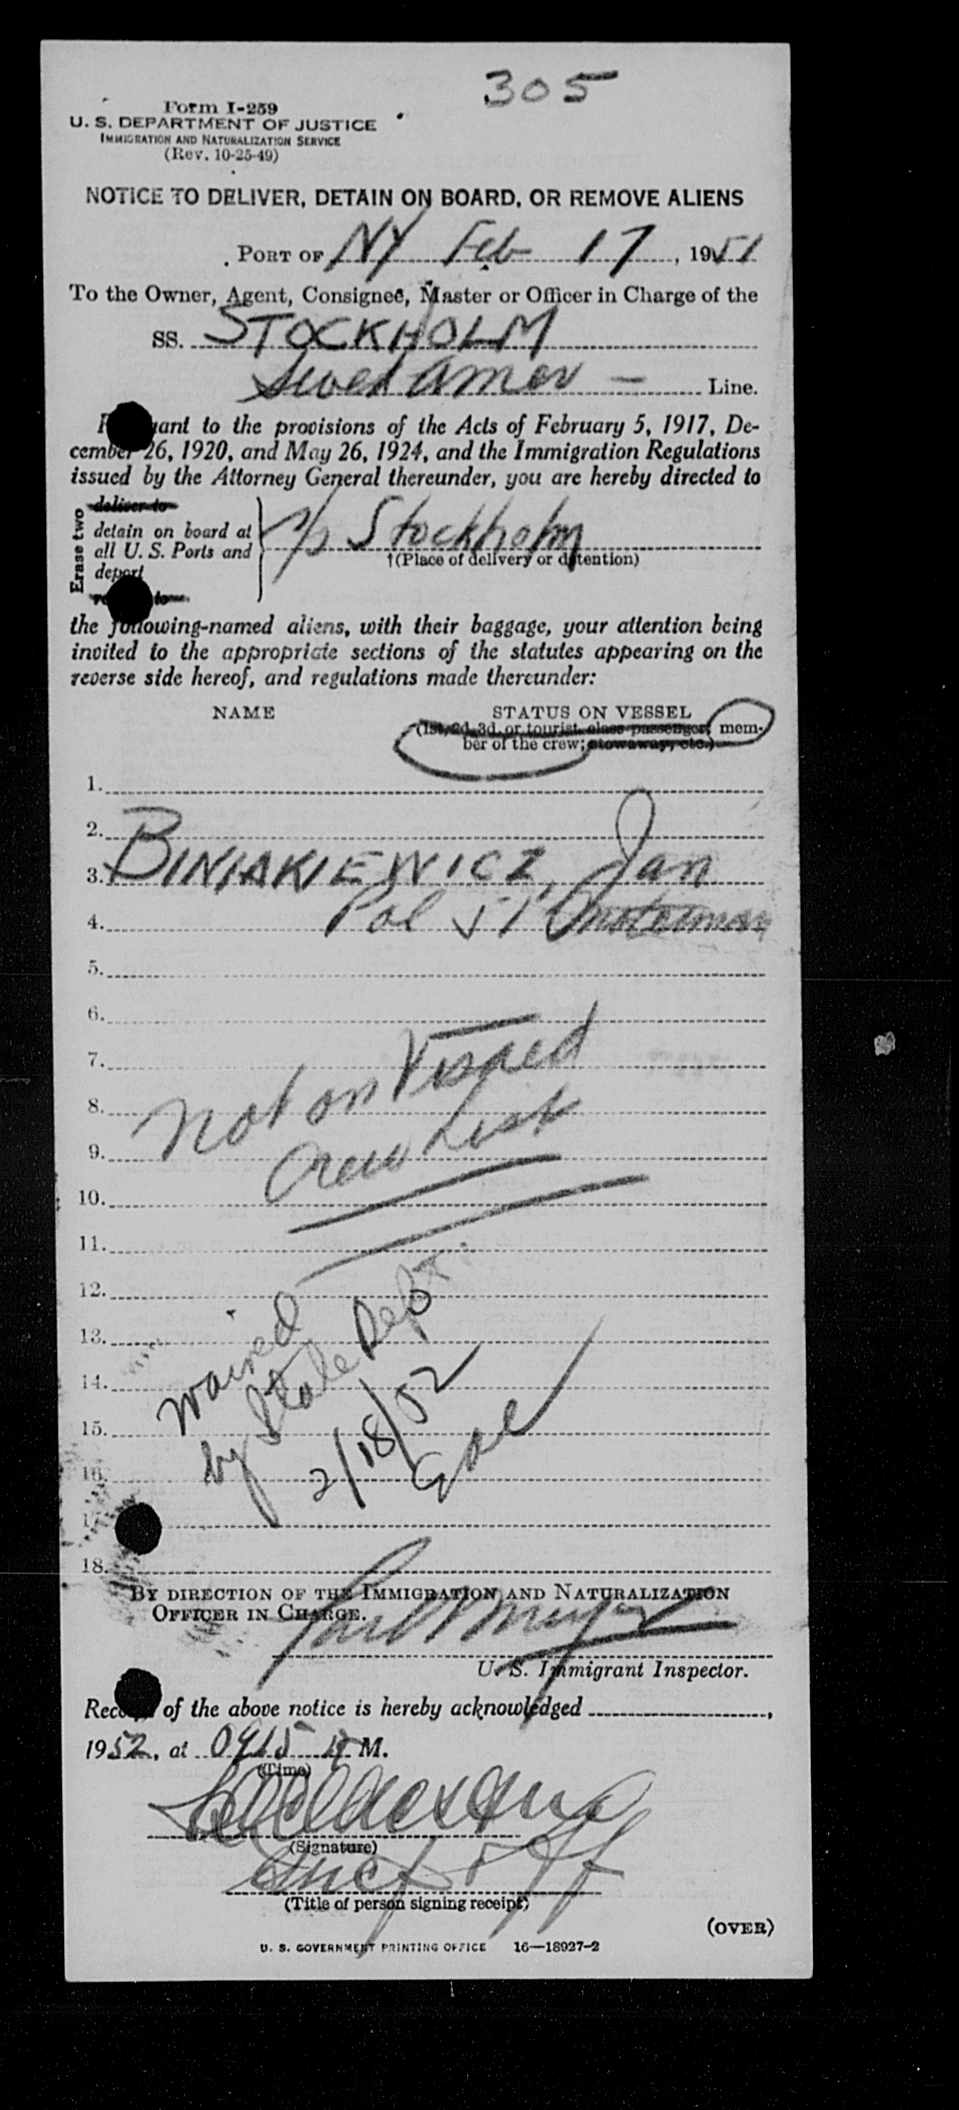 305
Form I-259
U. S. DEPARTMENT OF JUSTICE
IMMIGRATION AND NATURALIZATION SERVICE
(Rev. 10-25-49)
NOTICE TO DELIVER, DETAIN ON BOARD, OR REMOVE ALIENS
PORT OF NY Feb 17, 1951
To the Owner, Agent, Consignee, Master or Officer in Charge of the
SS. STOCKHOLM
Swed Amer — Line.
to the provisions of the Acts of February 5, 1917, De-
cember 26, 1920, and May 26, 1924, and the Immigration Regulations
issued by the Attorney General thereunder, you are hereby directed to
Erase two
deliver to
detain on board at
all U. S. Ports and
deport
Stockholm
†(Place of delivery or detention)
the following-named aliens, with their baggage, your attention being
invited to the appropriate sections of the statutes appearing on the
reverse side hereof, and regulations made thereunder:
NAME STATUS ON VESSEL
(1st, 2d, 3d, or tourist class passenger; mem-
ber of the crew; stowaway, etc.)
1.
2.
3. BINIAKIEWICZ, Jan
4. Pol 51
5.
6.
7.
8. Not on Visaed
9. Crew List
10.
11.
12.
13. Waived
14. by State Dept.
15. 2/18/52
16.
17.
18.
BY DIRECTION OF THE IMMIGRATION AND NATURALIZATION
OFFICER IN CHARGE.
U. S. Immigrant Inspector.
Receipt of the above notice is hereby acknowledged ,
1952, at 0915 A M.
(Time)
(Signature)
(Title of person signing receipt)
(OVER)
U. S. GOVERNMENT PRINTING OFFICE 16—18927-2